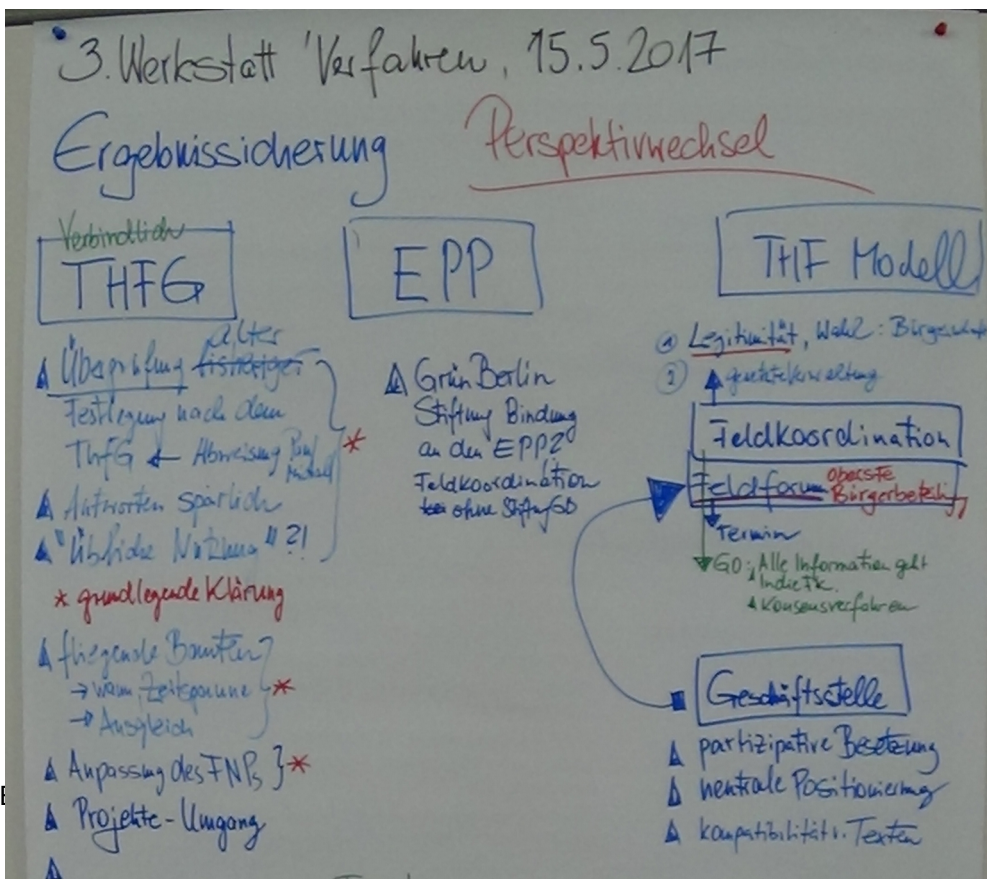 3. Werkstatt 'Verfahren, 15.5.2017
Ergebnissicherung
Perspektivwechsel
Verbindlich
THFG
alter
Überprüfung bisheriger
Festlegung nach dem
ThfG ← Abweisung
*
Antworten spärlich
"Übliche Nutzung"?!
* grundlegende Klärung
fliegende Bauten
→ wann, Zeitspanne *
→ Ausgleich
Anpassung des FNPs } *
Projekte-Umgang
EPP
Grün Berlin
Stiftung Bindung
an den EPP?
Feldkoordination
ohne
THF Modell
① Legitimität, Wahl:
②
Feldkoordination
Feldforum oberste
Bürgerbeteilig
Termin
GO: Alle Information geht
in die Fk.
Konsensverfahren
Geschäftsstelle
partizipative Besetzung
neutrale Positionierung
kompatibilität v. Texten